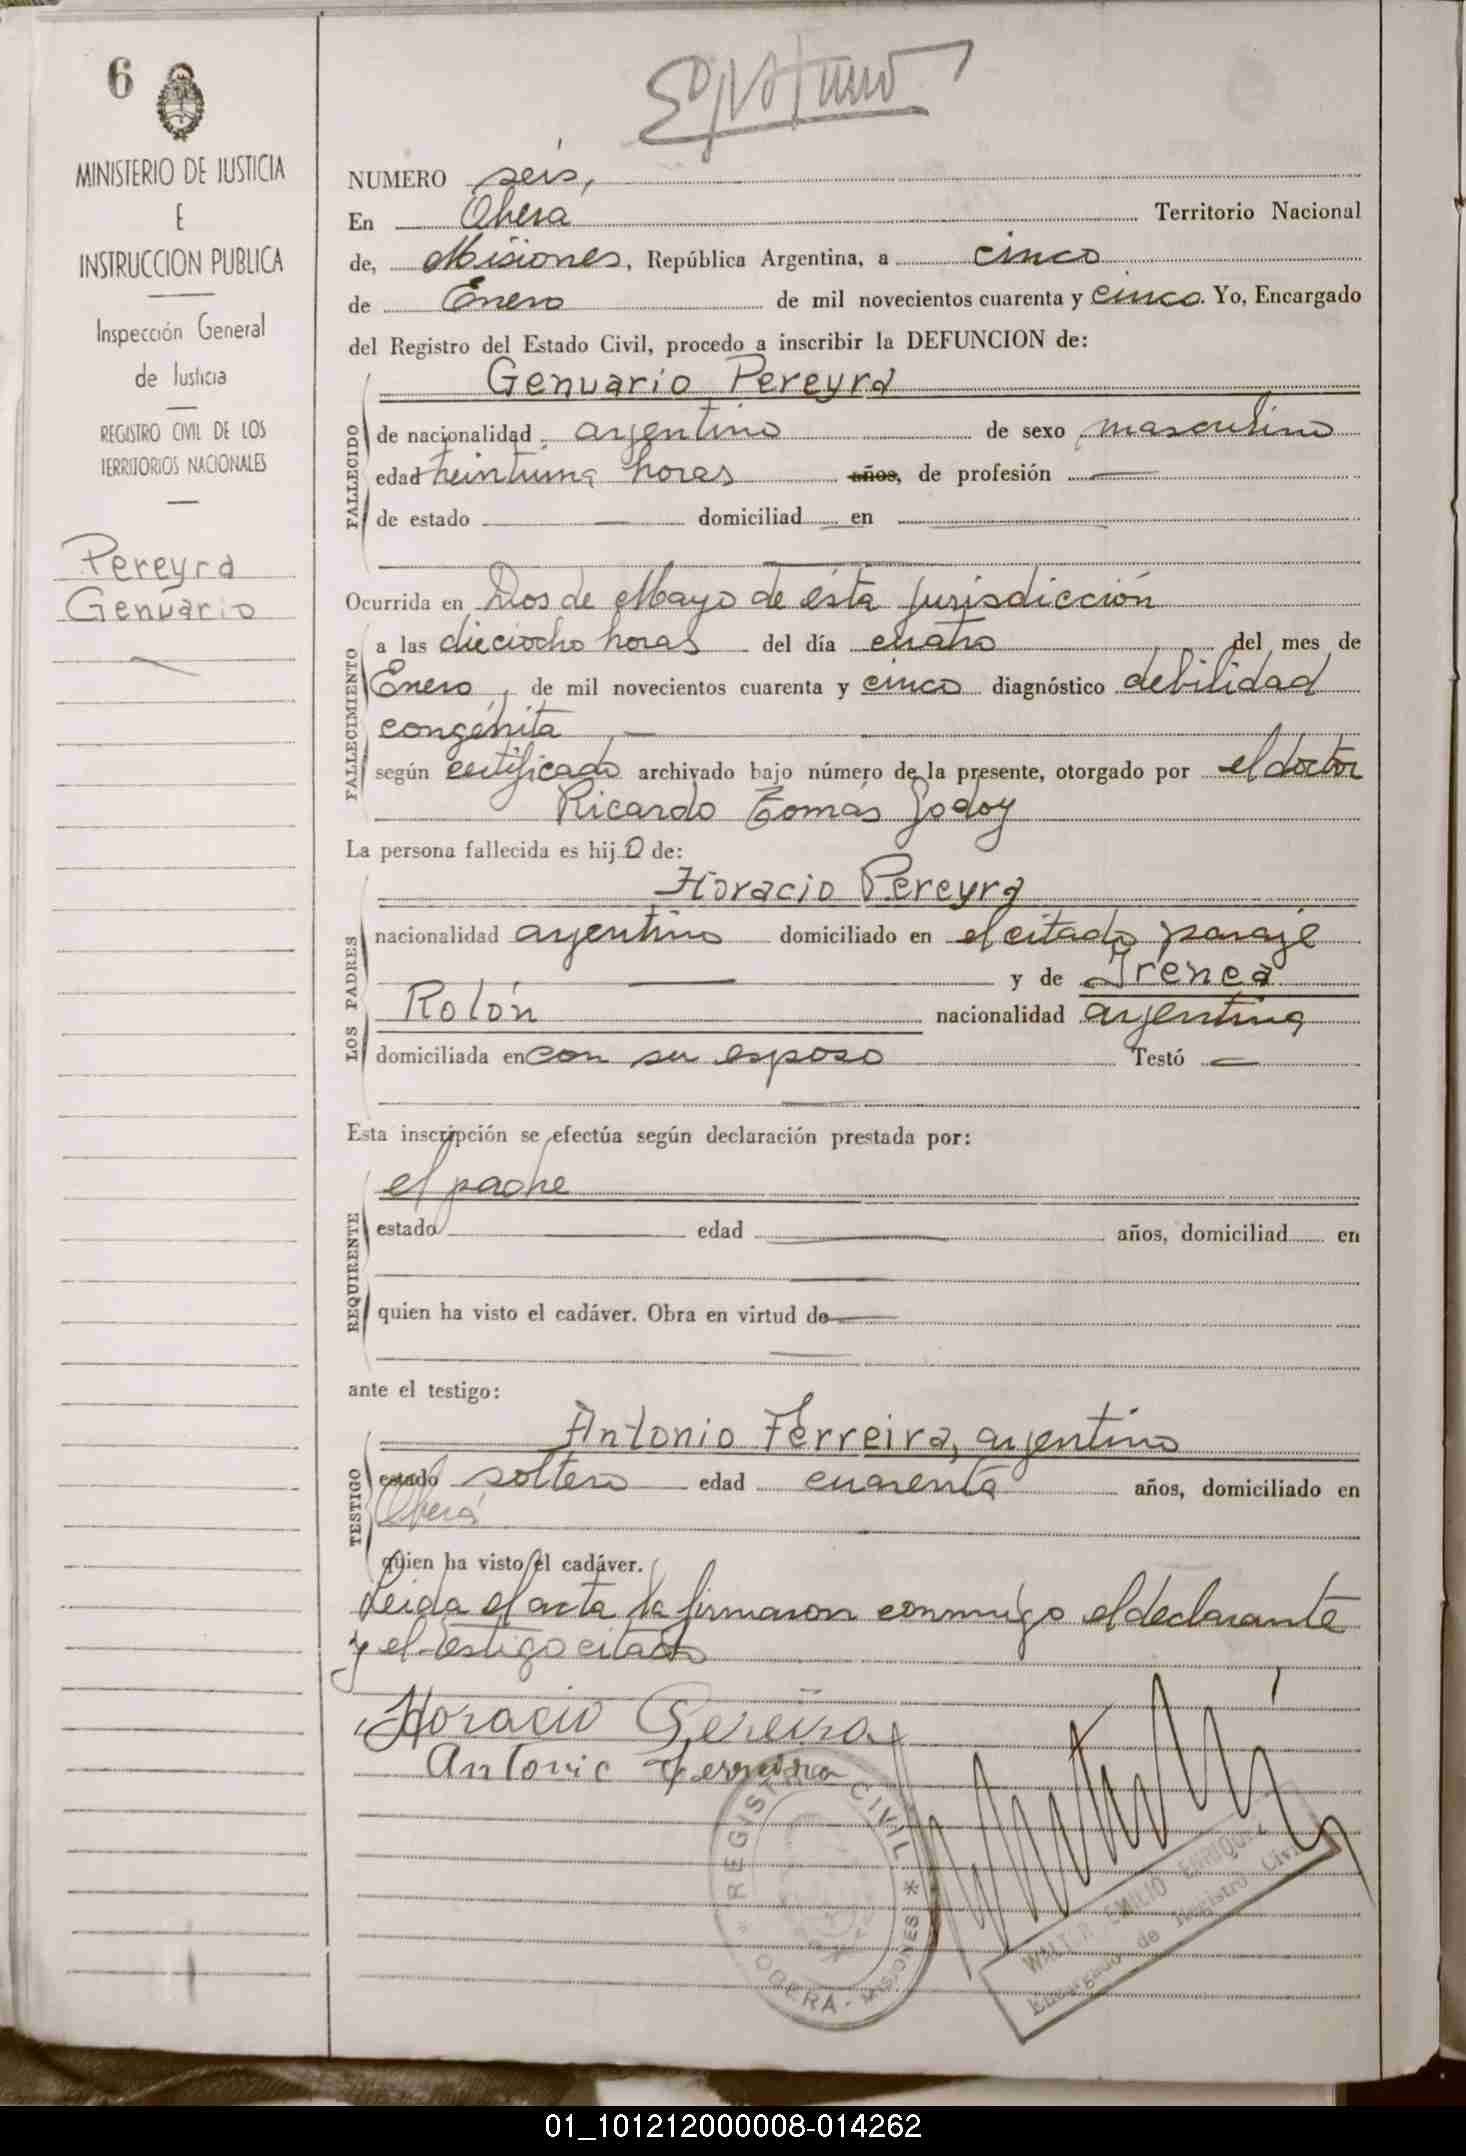 6
MINISTERIO DE JUSTICIA
E
INSTRUCCION PUBLICA
Inspección General
de Justicia
REGISTRO CIVIL DE LOS
TERRITORIOS NACIONALES
Pereyra
Genuario
NUMERO seis,
En Oberá Territorio Nacional
de, Misiones, República Argentina, a cinco
de Enero de mil novecientos cuarenta y cinco. Yo, Encargado
del Registro del Estado Civil, procedo a inscribir la DEFUNCION de:
FALLECIDO
Genuario Pereyra
de nacionalidad argentino de sexo masculino
edad veintiuna horas años, de profesión —
de estado — domiciliad en —
Ocurrida en Dos de Mayo de ésta jurisdicción
FALLECIMIENTO
a las dieciocho horas del día cuatro del mes de
Enero, de mil novecientos cuarenta y cinco diagnóstico debilidad
congénita —
según certificado archivado bajo número de la presente, otorgado por el doctor
Ricardo Tomás Godoy
La persona fallecida es hijo de:
LOS PADRES
Horacio Pereyra
nacionalidad argentino domiciliado en el citado paraje
— y de Irenea
Rolón nacionalidad argentina
domiciliada en con su esposo Testó —
Esta inscripción se efectúa según declaración prestada por:
REQUIRENTE
el padre
estado — edad — años, domiciliad en
—
quien ha visto el cadáver. Obra en virtud de —
—
ante el testigo:
TESTIGO
Antonio Ferreira, argentino
estado soltero edad cuarenta años, domiciliado en
Oberá
quien ha visto el cadáver.
Leida el acta la firmaron conmigo el declarante
y el testigo citado
Horacio Pereira
Antonio Ferreira
REGISTRO CIVIL
* OBERA - MISIONES *
WALTER EMILIO ENRIQUE
Encargado de Registro Civil
01_101212000008-014262